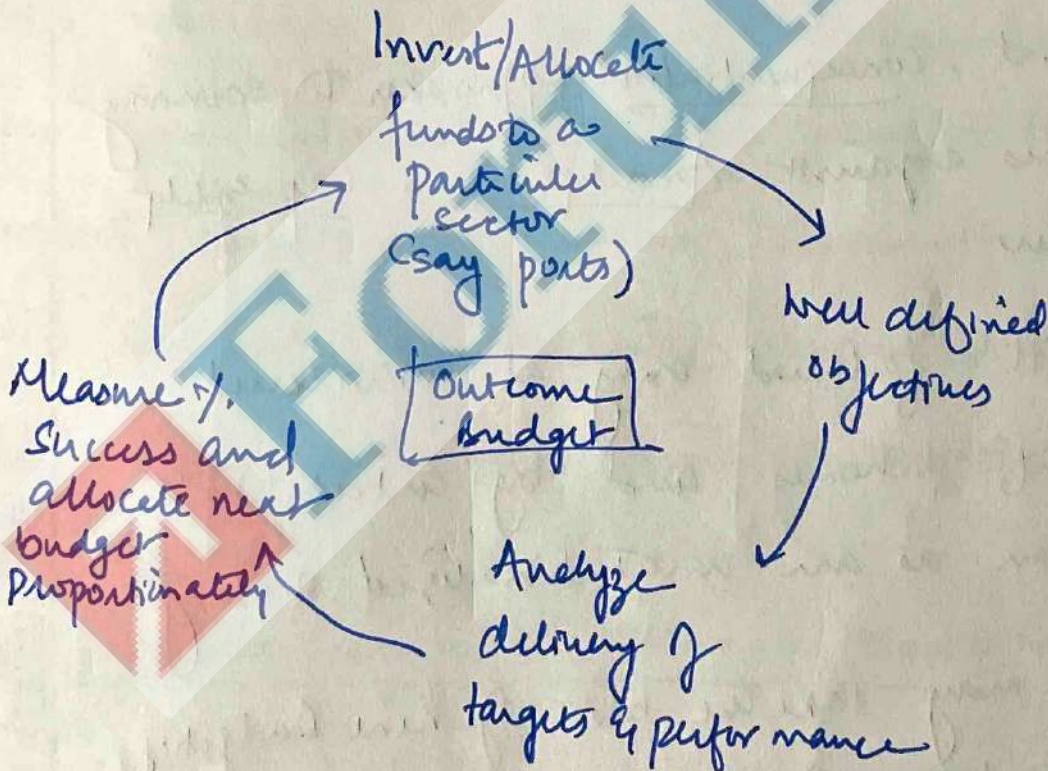 Invest/Allocate
funds to a
particular
sector
(say ports)
well defined
objectives
Analyze
delivery of
targets & performance
Measure %
Success and
allocate next
budget
Proportionately
Outcome
Budget
Forum